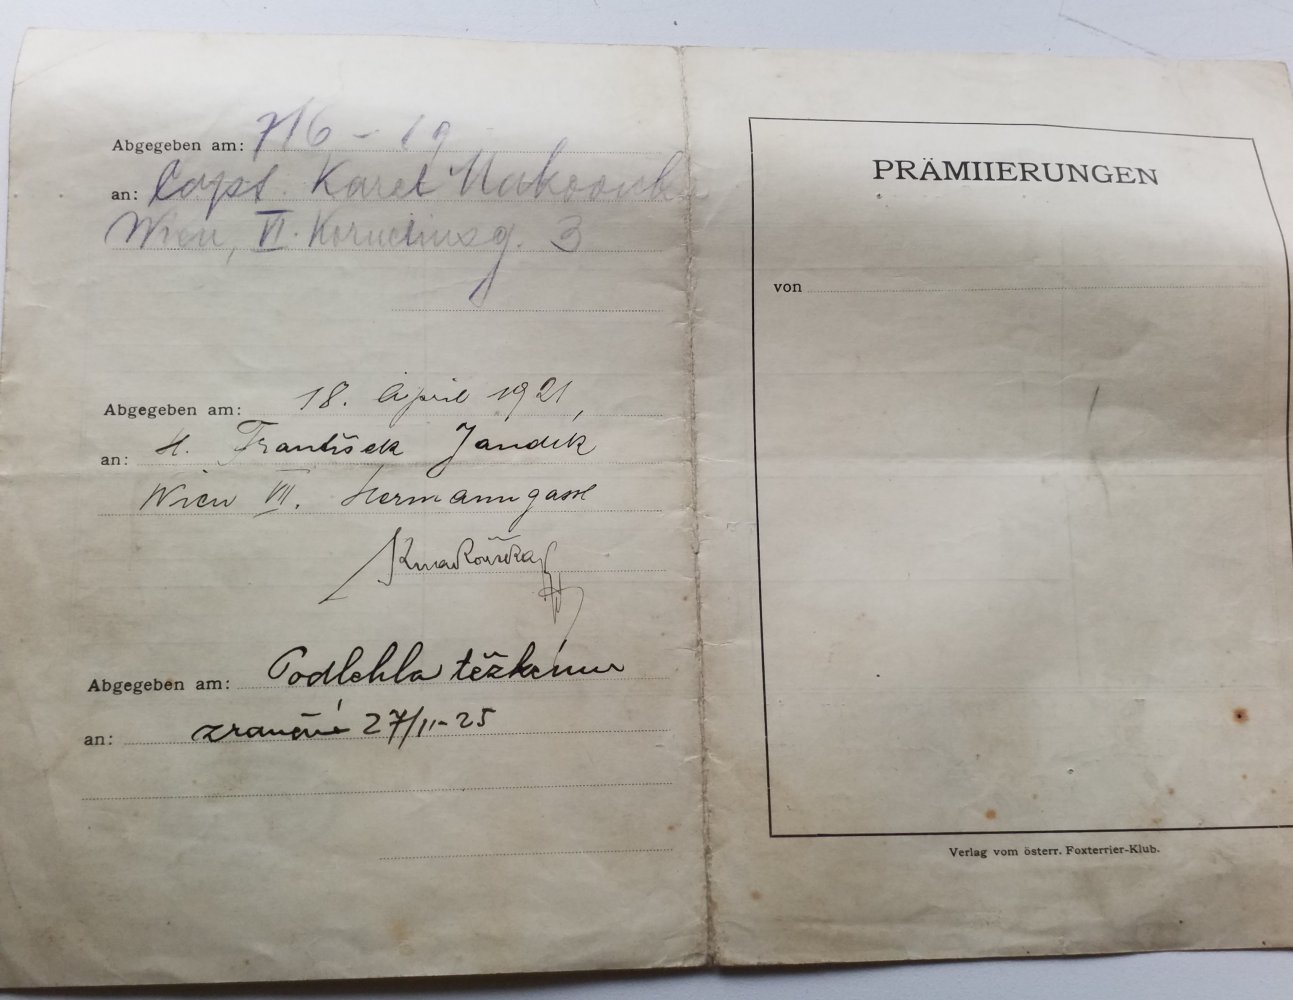 Abgegeben am: 7/6 - 19
an: Capt. Karel
Wien, VI. 3
Abgegeben am: 18. April 1921,
an: H. František Jandík
Wien VII. Hermanngasse
Abgegeben am: Podlehla těžkému
an: zranění 27/II-25
PRÄMIIERUNGEN
von
Verlag vom österr. Foxterrier-Klub.